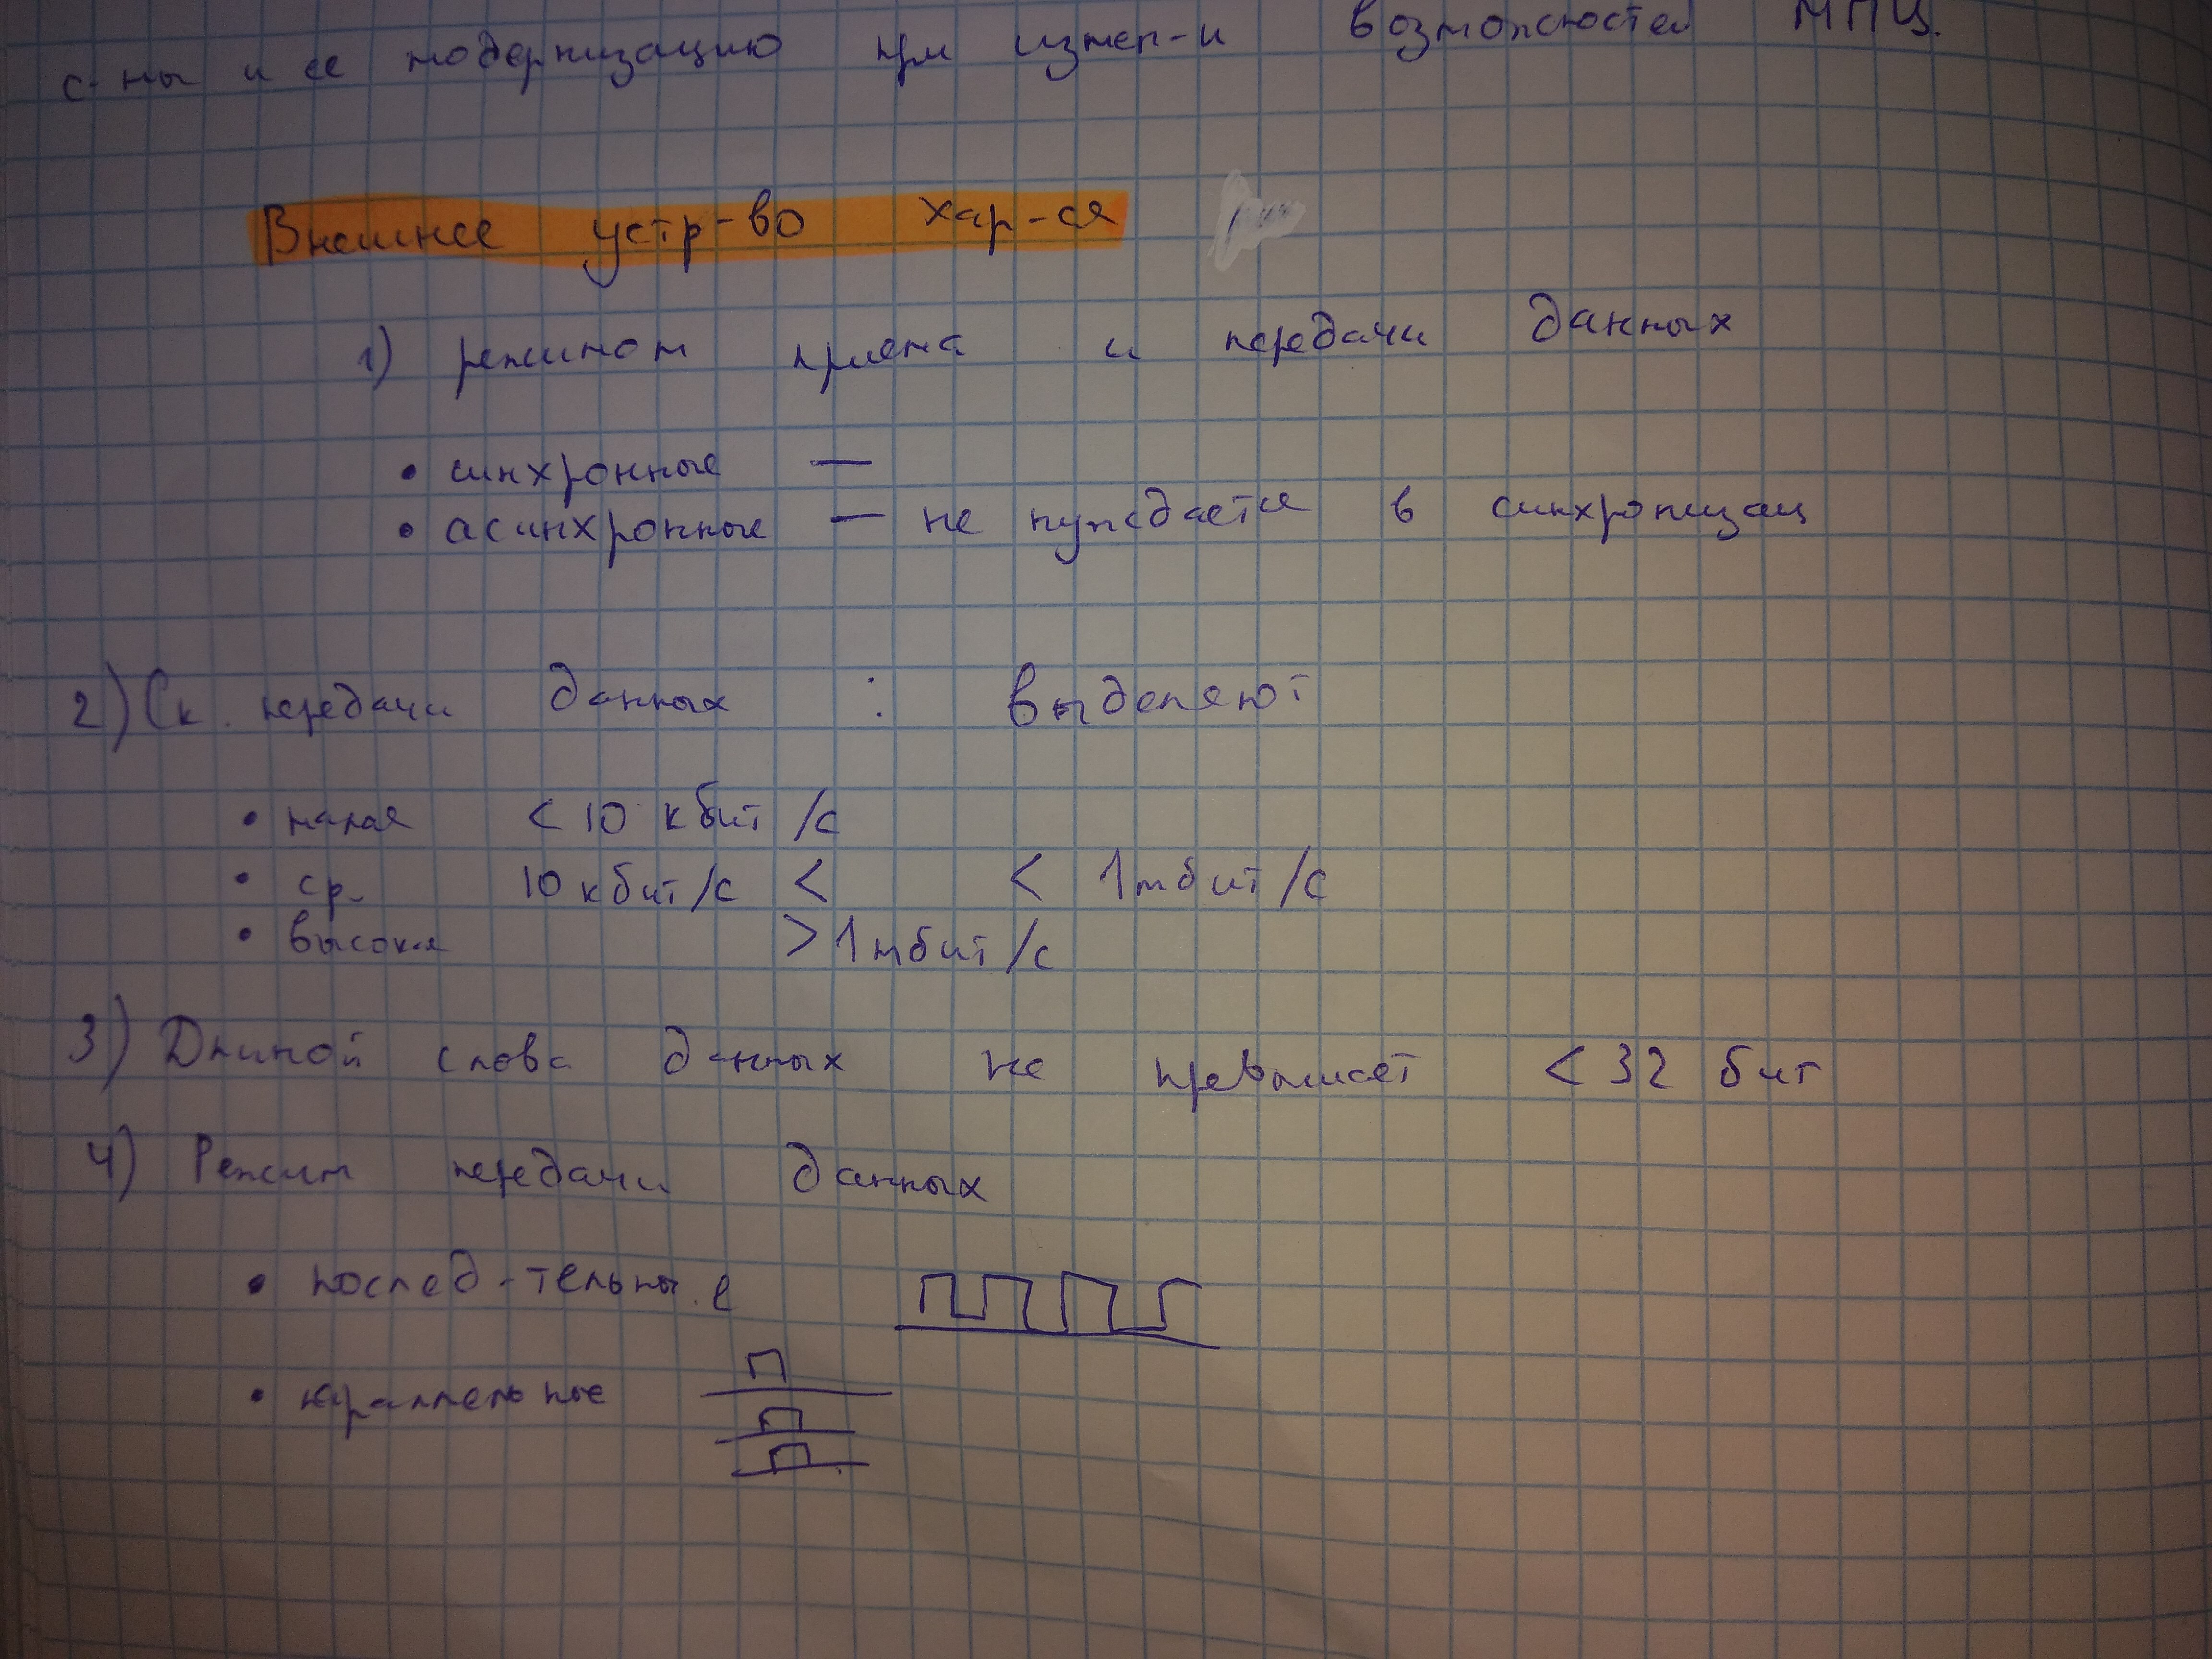 с-мы и ее модернизацию при измер-и возможностей МПЦ.
Внешнее устр-во хар-ся
1) режимом приема и передачи данных
• синхронные —
• асинхронные — не нуждается в синхронизац
2) Ск. передачи данных : выделяют
• малая < 10 кбит/с
• ср. 10 кбит/с < < 1 мбит/с
• высок-я > 1 мбит/с
3) Длиной слова данных не превышает < 32 бит
4) Режим передачи данных
• послед-тельные
• параллельные